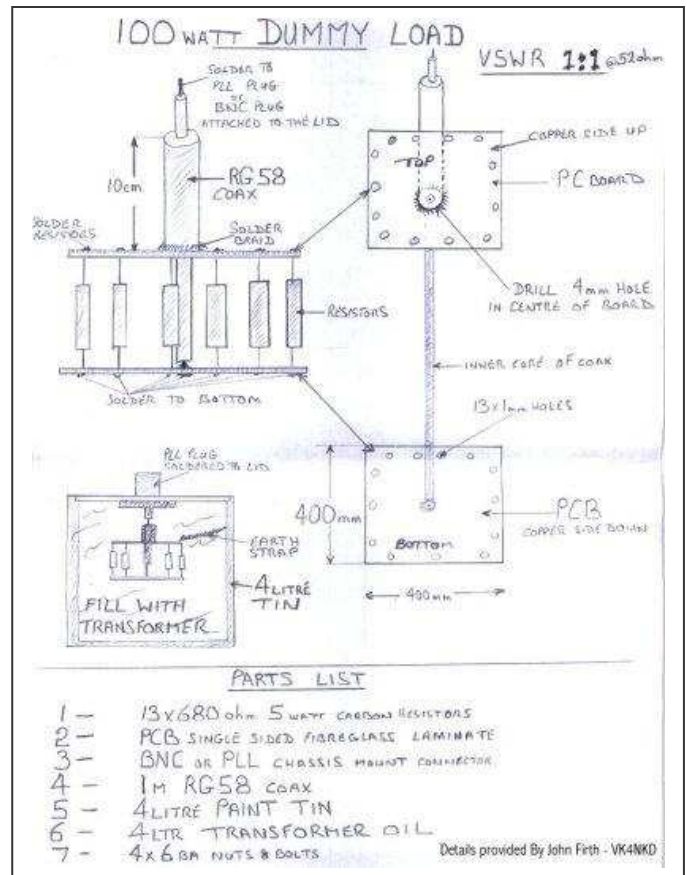 100 WATT DUMMY LOAD
VSWR 1:1 @52ohm
SOLDER TO
PLL PLUG
OR
BNC PLUG
ATTACHED TO THE LID
10cm
RG58
COAX
SOLDER
RESISTORS
SOLDER
BRAID
RESISTORS
SOLDER TO BOTTOM
COPPER SIDE UP
TOP
PC BOARD
DRILL 4mm HOLE
IN CENTRE OF BOARD
INNER CORE OF COAX
13x1mm HOLES
400mm
BOTTOM
PCB
COPPER SIDE DOWN
400mm
PLL PLUG
SOLDERED TO LID
EARTH
STRAP
4 LITRE
TIN
FILL WITH
TRANSFORMER
PARTS LIST
1 - 13x680 ohm 5 WATT CARBON RESISTORS
2 - PCB SINGLE SIDED FIBREGLASS LAMINATE
3 - BNC OR PLL CHASSIS MOUNT CONNECTOR
4 - 1M RG58 COAX
5 - 4 LITRE PAINT TIN
6 - 4LTR TRANSFORMER OIL
7 - 4 x 6BA NUTS & BOLTS
Details provided By John Firth - VK4NKD